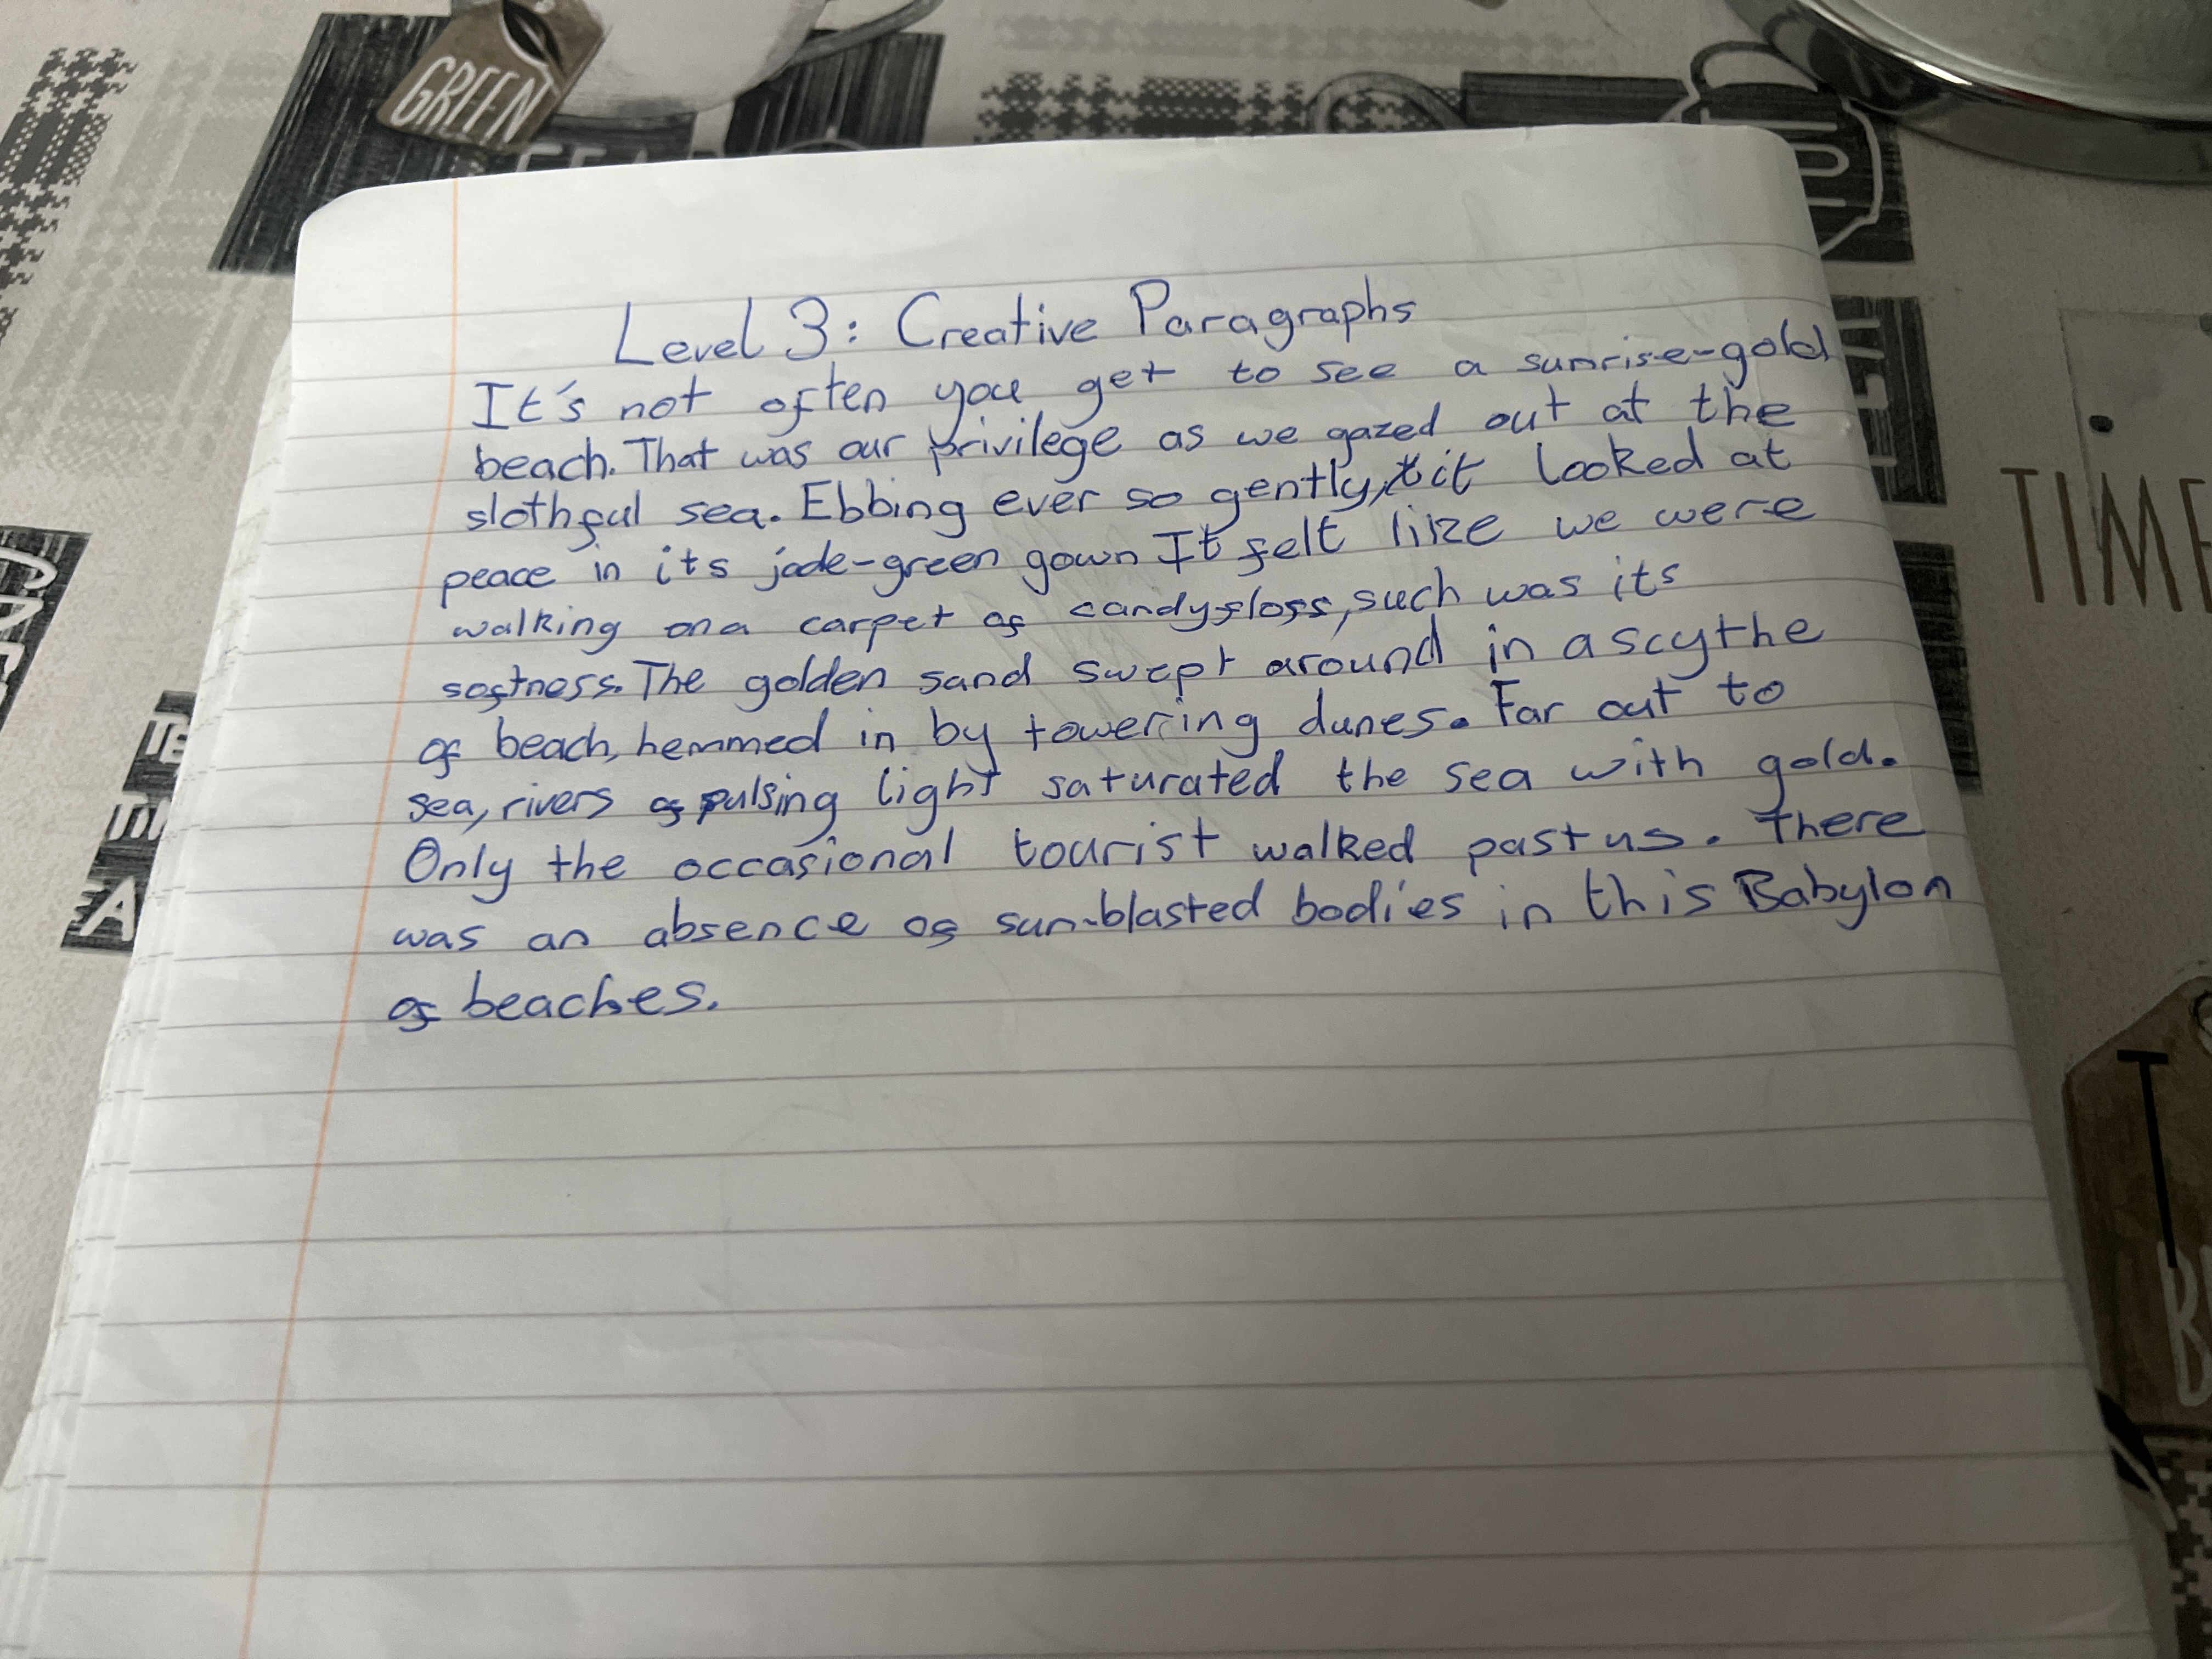 GREEN
TIME
Level 3: Creative Paragraphs
It's not often you get to see a sunrise-gold
beach. That was our privilege as we gazed out at the
slothful sea. Ebbing ever so gently, it looked at
peace in its jade-green gown It felt like we were
walking on a carpet of candyfloss, such was its
softness. The golden sand swept around in a scythe
of beach, hemmed in by towering dunes. Far out to
sea, rivers of pulsing light saturated the sea with gold.
Only the occasional tourist walked past us. There
was an absence of sun-blasted bodies in this Babylon
of beaches.